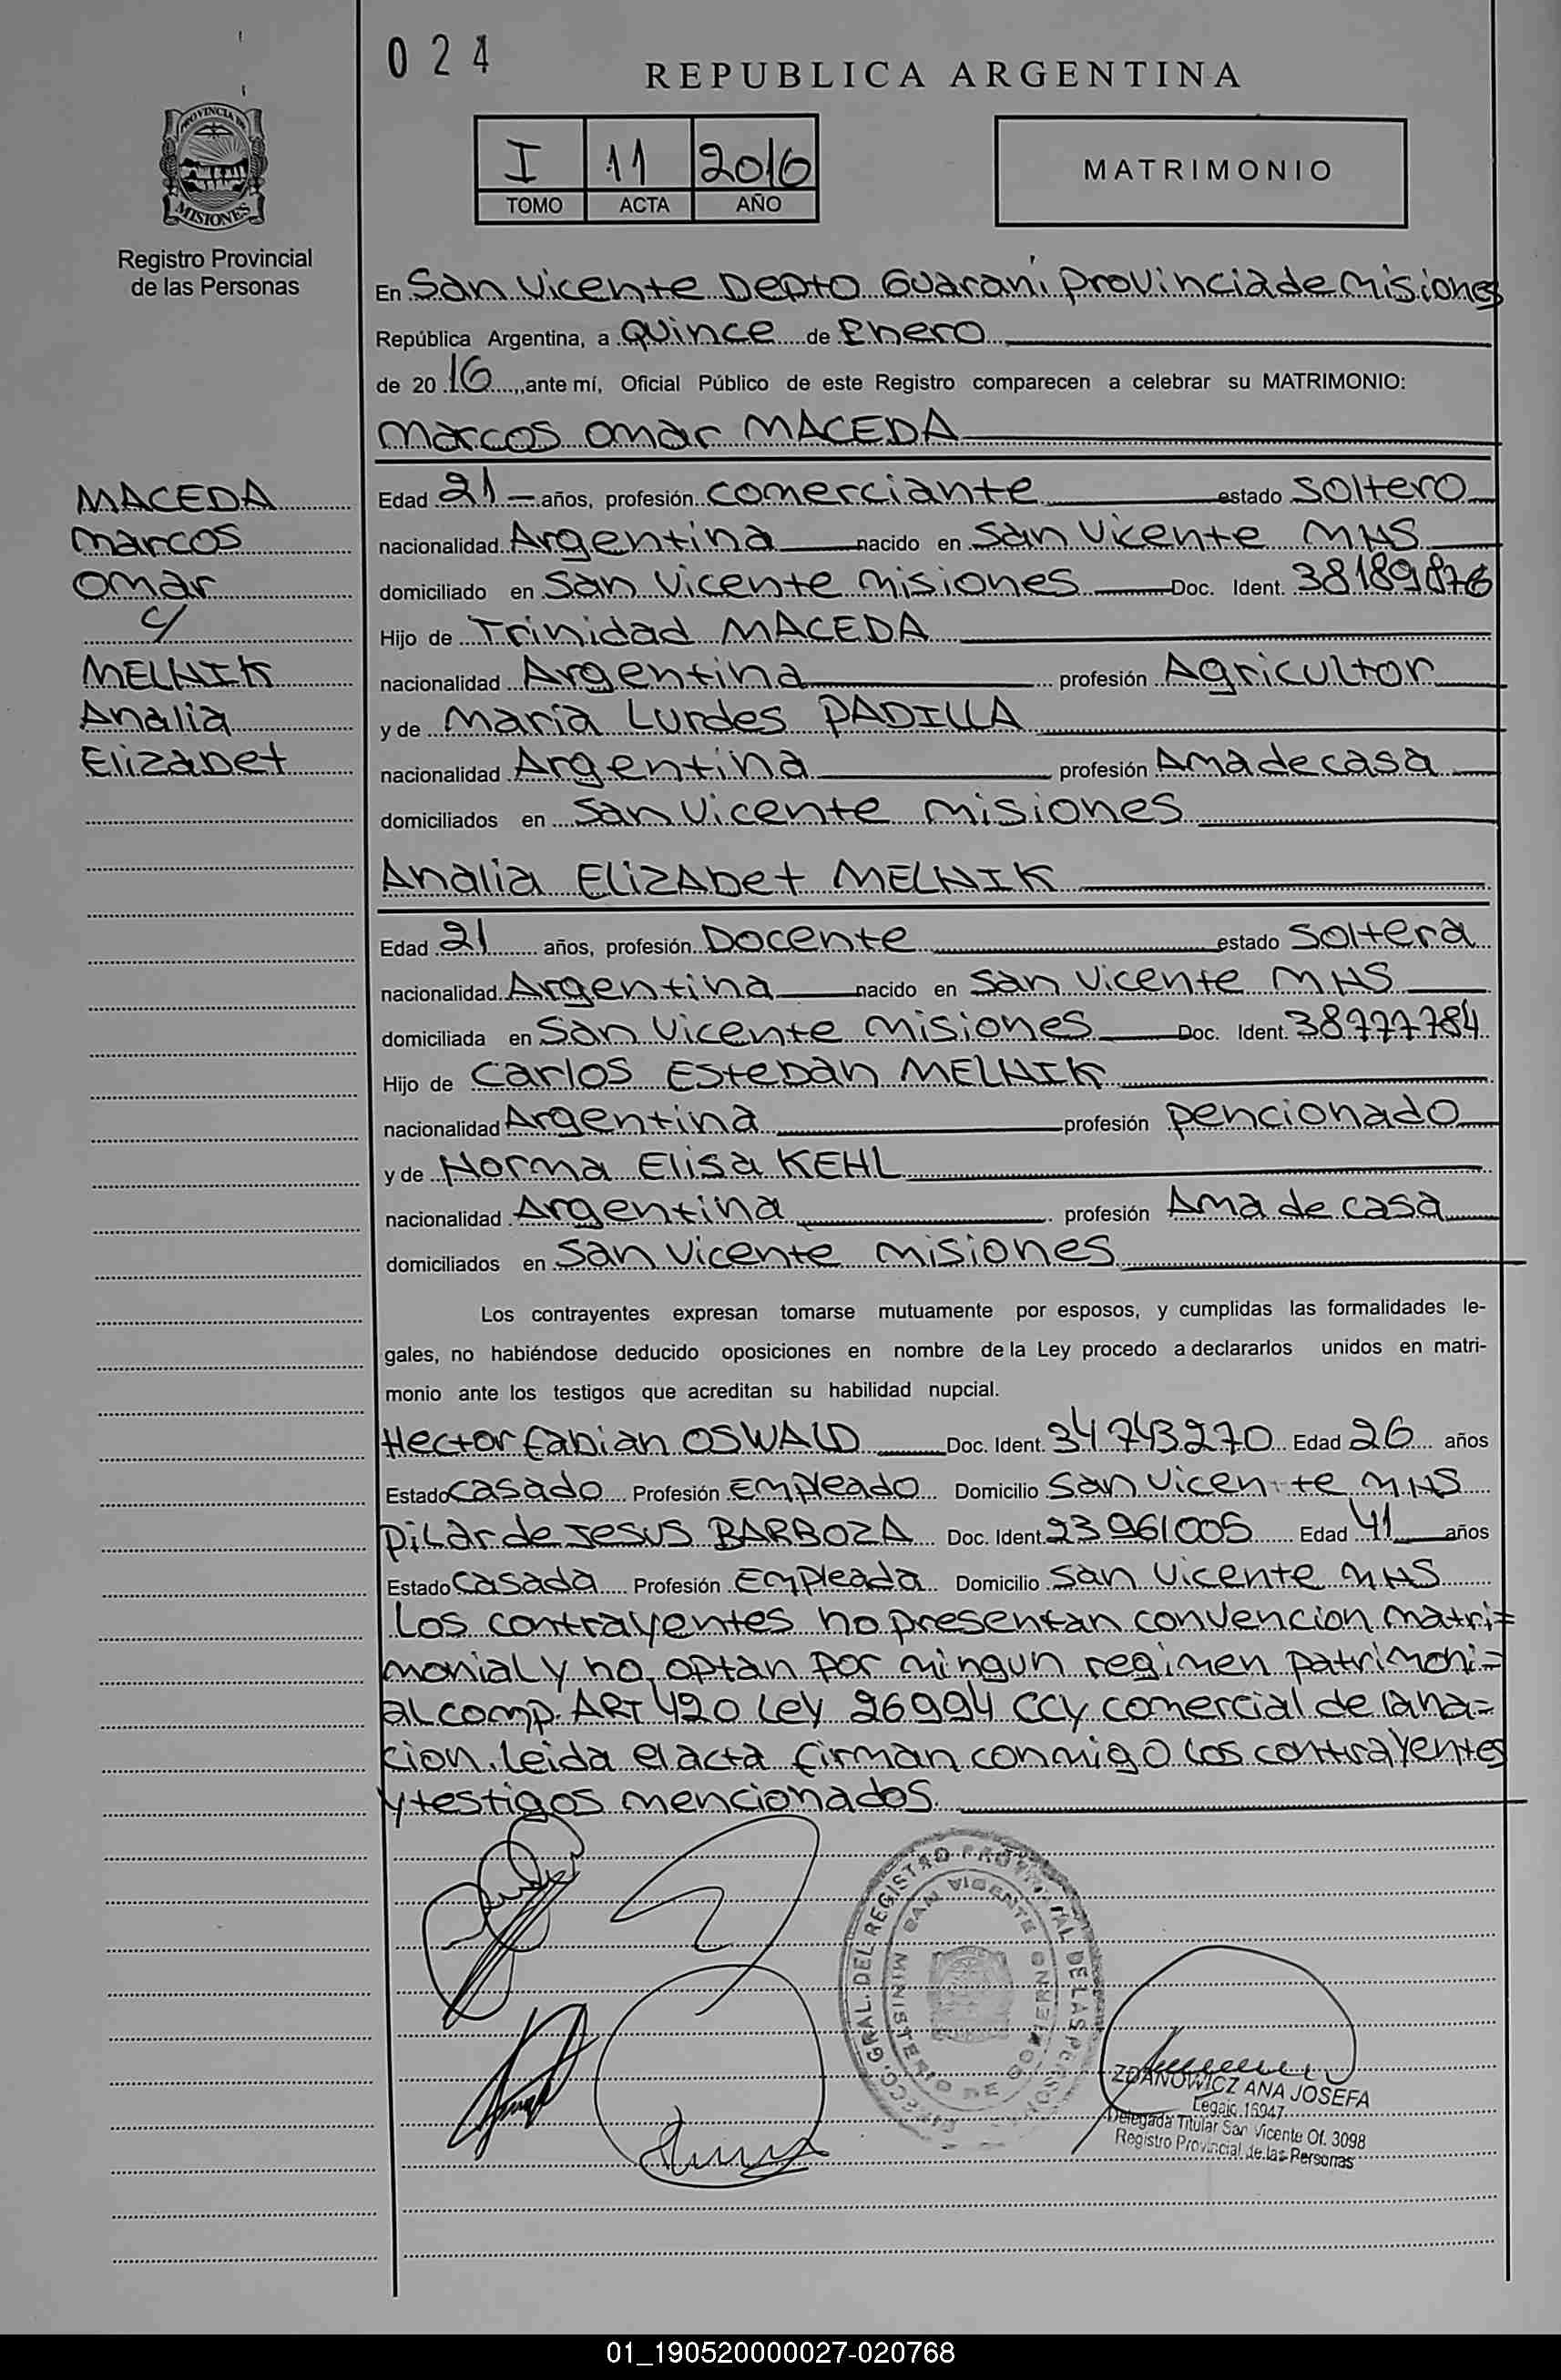 024
REPUBLICA ARGENTINA
I 11 2016
TOMO ACTA AÑO
MATRIMONIO
PROVINCIA DE
MISIONES
Registro Provincial
de las Personas
En San Vicente Depto Guaraní Provincia de Misiones
República Argentina, a Quince de Enero
de 2016, ante mí, Oficial Público de este Registro comparecen a celebrar su MATRIMONIO:
Marcos Omar MACEDA
MACEDA
Marcos
Omar
c/
MELNIK
Analia
Elizabet
Edad 21 años, profesión comerciante estado Soltero
nacionalidad Argentina nacido en San Vicente MNS
domiciliado en San Vicente Misiones Doc. Ident. 38189876
Hijo de Trinidad MACEDA
nacionalidad Argentina profesión Agricultor
y de Maria Lurdes PADILLA
nacionalidad Argentina profesión Ama de casa
domiciliados en San Vicente Misiones
Analia Elizabet MELNIK
Edad 21 años, profesión Docente estado Soltera
nacionalidad Argentina nacido en San Vicente MNS
domiciliada en San Vicente Misiones Doc. Ident. 38777784
Hijo de Carlos Esteban MELNIK
nacionalidad Argentina profesión pencionado
y de Norma Elisa KEHL
nacionalidad Argentina profesión Ama de casa
domiciliados en San Vicente Misiones
Los contrayentes expresan tomarse mutuamente por esposos, y cumplidas las formalidades le-
gales, no habiéndose deducido oposiciones en nombre de la Ley procedo a declararlos unidos en matri-
monio ante los testigos que acreditan su habilidad nupcial.
Hector Fabian OSWALD Doc. Ident. 34743270 Edad 26 años
Estado Casado Profesión Empleado Domicilio San Vicente MNS
Pilar de Jesus BARBOZA Doc. Ident. 23961005 Edad 41 años
Estado Casada Profesión Empleada Domicilio San Vicente MNS
Los contrayentes no presentan convencion matri=
monial y no optan por ningun regimen patrimoni=
al comp. ART 420 Ley 26994 CC y comercial de la na=
cion. leida el acta firman conmigo los contrayentes
y testigos mencionados.
DIRECC. GRAL. DEL REGISTRO PROVINCIAL DE LAS PERSONAS
SAN VICENTE
MINISTERIO DE GOBIERNO
ZDANOWICZ ANA JOSEFA
Legajo 16947
Delegada Titular San Vicente Of. 3098
Registro Provincial de las Personas
01_190520000027-020768